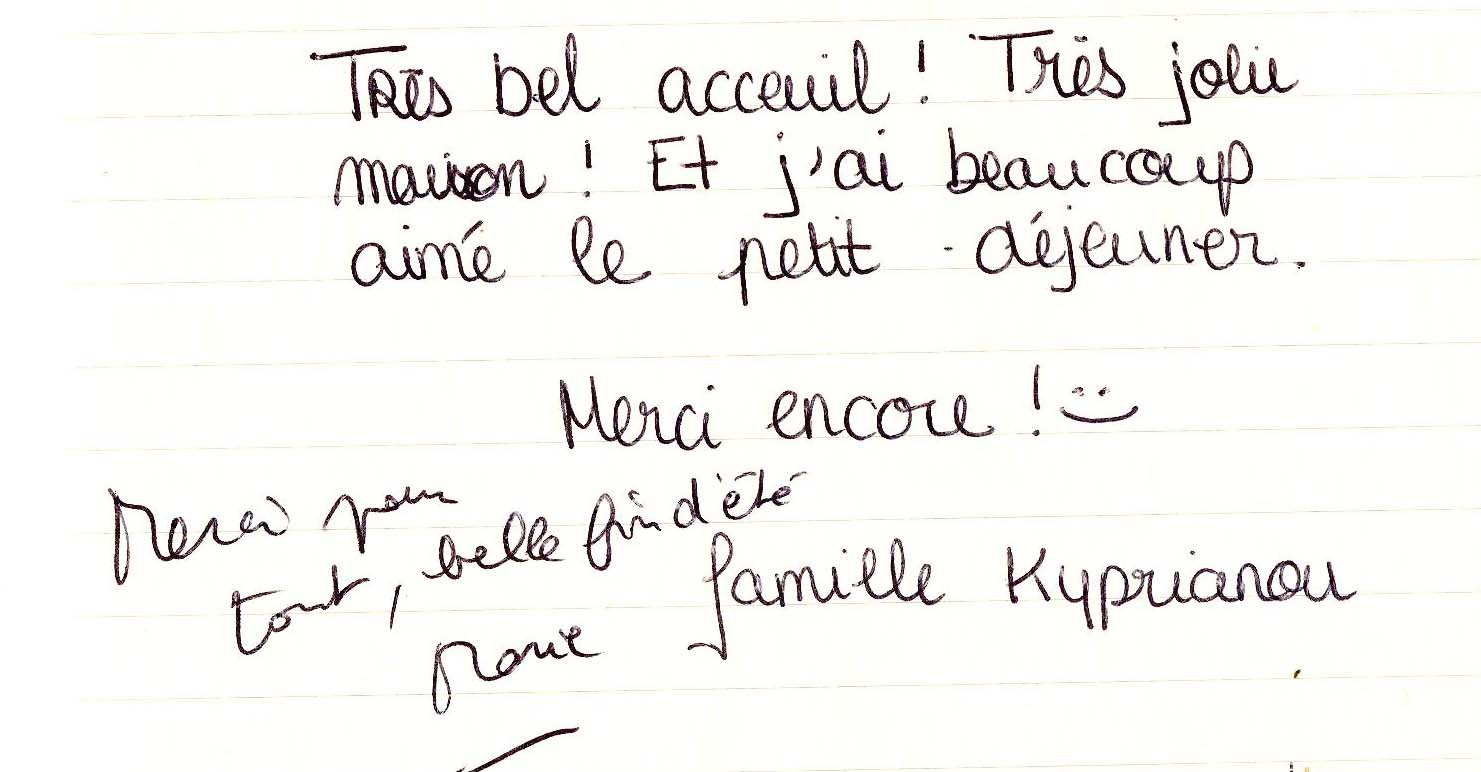 Très bel acceuil ! Très jolie
maison ! Et j'ai beaucoup
aimé le petit-déjeuner.
Merci encore ! :)
Merci pour
tout, belle fin d'été
Marie
famille Kyprianou